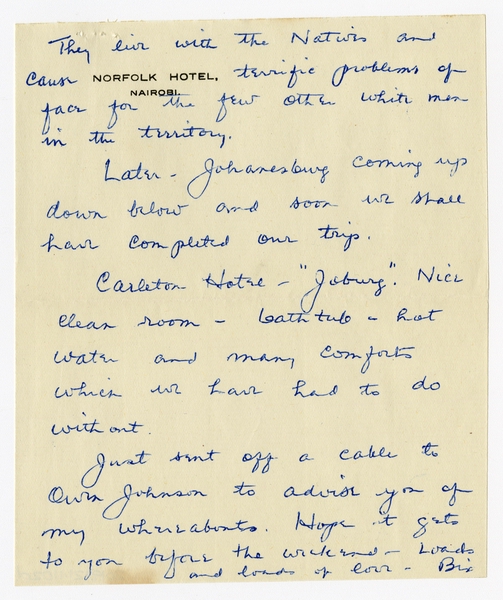 They live with the Natives and
cause NORFOLK HOTEL, terrific problems of
NAIROBI.
face for the few other white men
in the territory.
Later - Johanesburg coming up
down below and soon we shall
have completed our trip.
Carleton Hotel - "Joburg". Nice
clean room - bathtub - hot
water and many comforts
which we have had to do
without.
Just sent off a cable to
Owen Johnson to advise you of
my whereabouts. Hope it gets
to you before the weekend - Loads
and loads of love - Bix